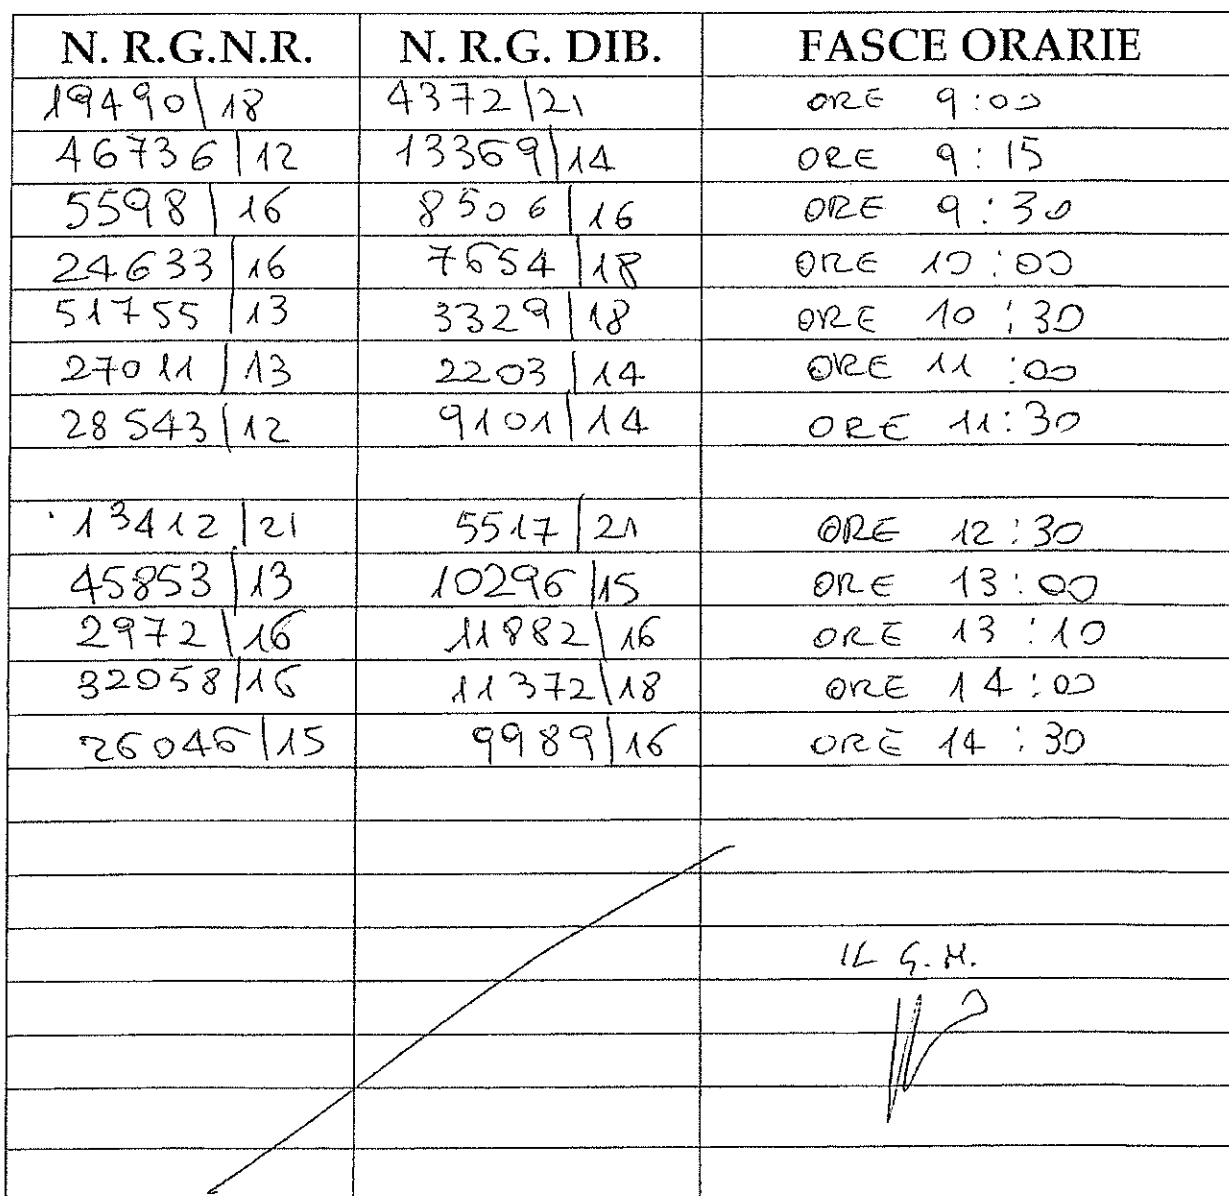 N. R.G.N.R. N. R.G. DIB. FASCE ORARIE
19490/18 4372/21 ORE 9:00
46736/12 13369/14 ORE 9:15
5598/16 8506/16 ORE 9:30
24633/16 7654/18 ORE 10:00
51755/13 3329/18 ORE 10:30
27011/13 2203/14 ORE 11:00
28543/12 9101/14 ORE 11:30
13412/21 5517/21 ORE 12:30
45853/13 10296/15 ORE 13:00
2972/16 11882/16 ORE 13:10
32058/16 11372/18 ORE 14:00
26046/15 9989/16 ORE 14:30
IL G.M.